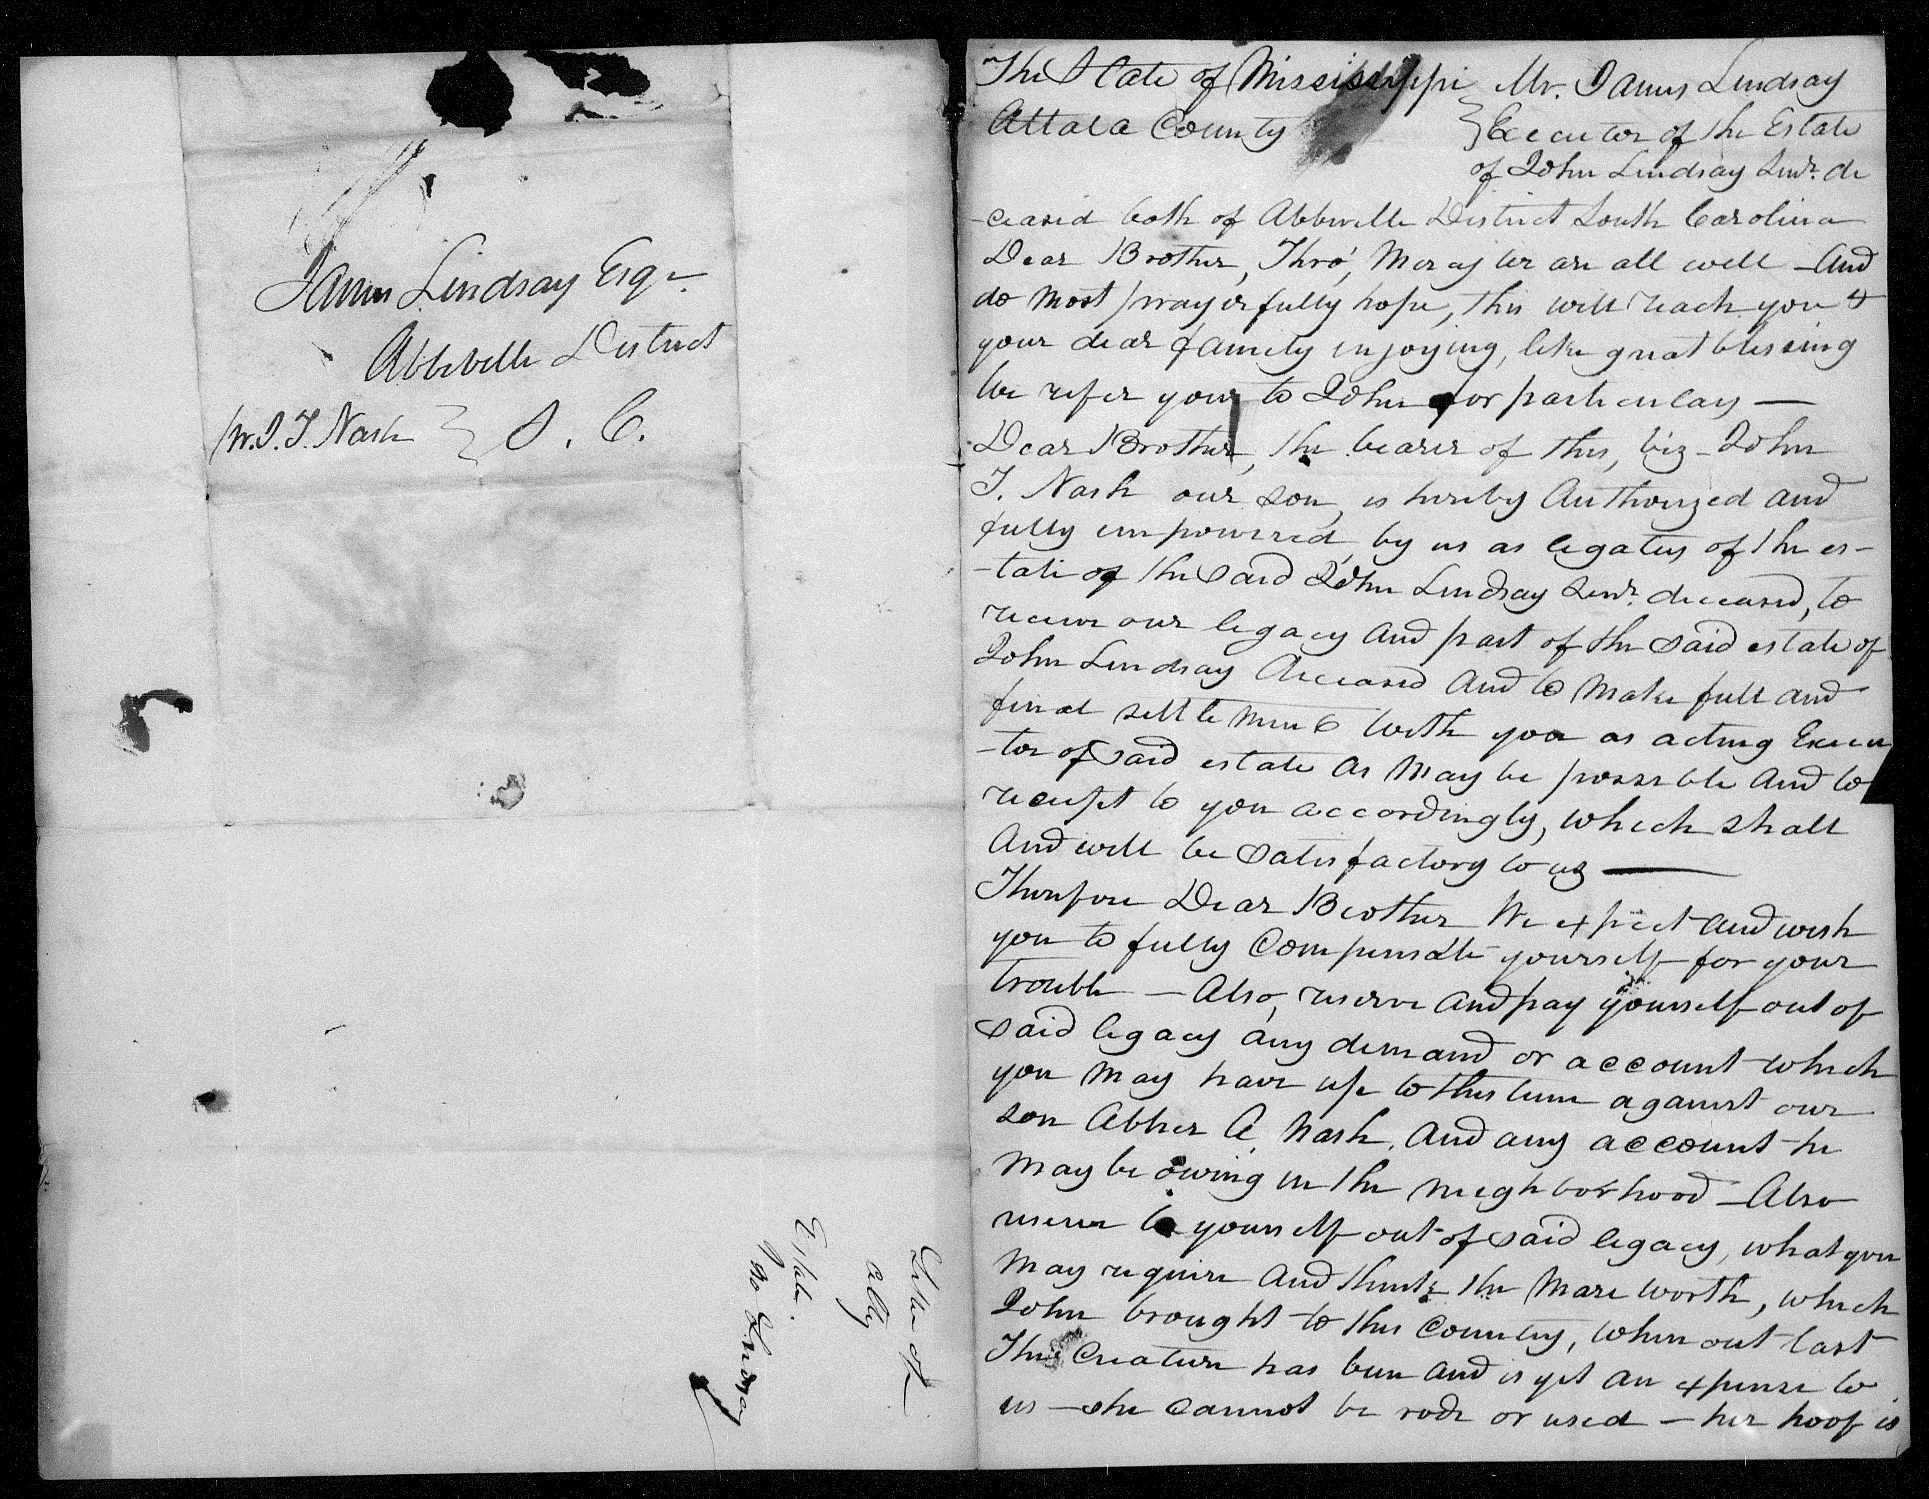 James Lindsay Esqr.
Abbeville District
S. C.
J. T. Nash
Letter of
atty
Estate
Jno Lindsay
The State of Mississippi
Attala County
Mr. James Lindsay
Executor of the Estate
of John Lindsay Senr. de
-ceased both of Abbeville District South Carolina
Dear Brother, Thro', Mercy we are all well - And
do most prayerfully hope, this will reach you &
your dear family injoying, like great blessing
We refer you to John for particulars —
Dear Brother, the bearer of this, viz - John
T. Nash our son, is hereby Authorized and
fully impowered, by us as legatees of the es-
-tate of the Said John Lindsay Senr. deceased, to
receive our legacy And part of the said estate of
John Lindsay deceased And to Make full and
final settlement with you as acting Execu
-tor of Said estate As May be possible And to
receipt to you accordingly, which shall
And will be Satisfactory to us —
Therefore Dear Brother We expect And wish
you to fully Compensate yourself for your
trouble — Also, reserve And pay yourself out of
said legacy any demand or account which
you May have up to this time against our
son Abner A. Nash, And any account he
May be owing in the neighborhood - Also
reserve to yourself out of said legacy, what you
May require And think the Mare worth, which
John brought to this Country, when out last
This Creature has been And is yet An expense to
us — She Cannot be rode or used — her hoof is